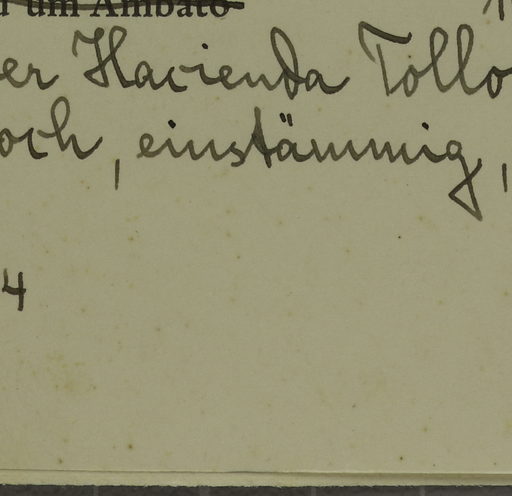 um Ambato
er Hacienda Tollo
och, einstämmig,
4